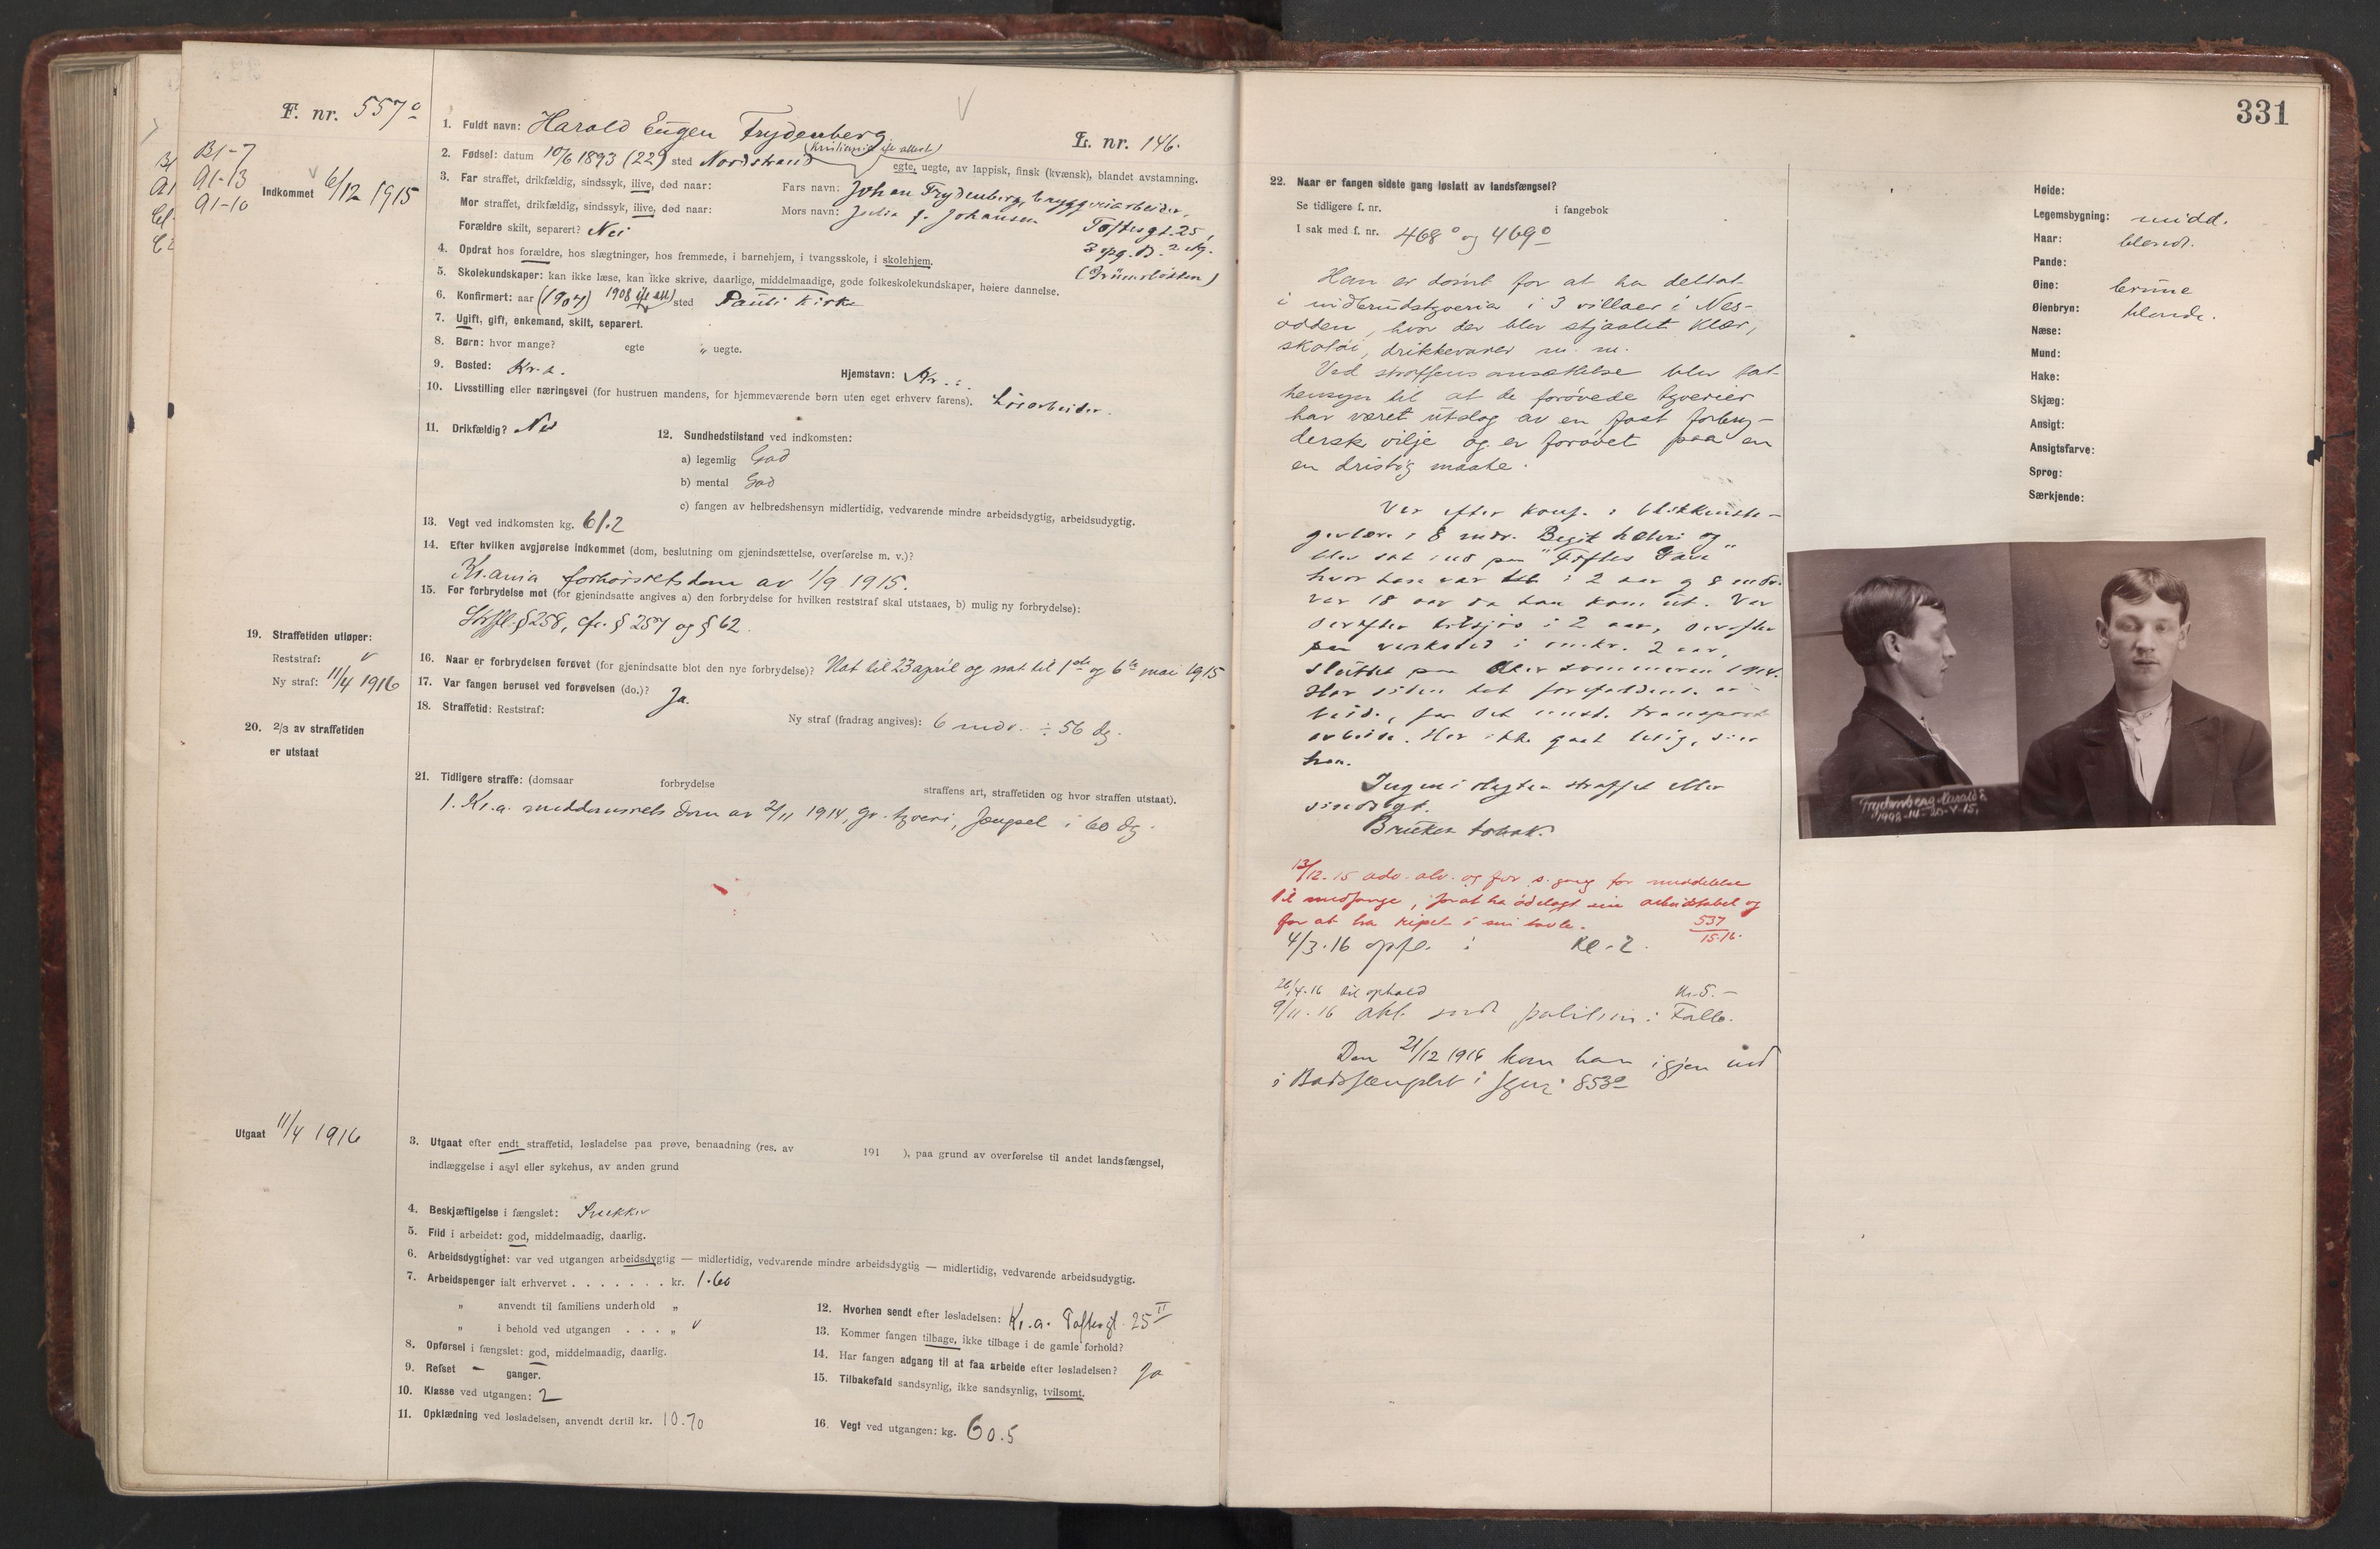 F. nr. 557º
B1-7
A1-13
A1-10
Indkommet 6/12 1915
1. Fuldt navn: Harold Eugen Frydenberg
L. nr. 146.
(Kristiania ifl. attest)
2. Fødsel: datum 10/6 1893 (22) sted Nordstrand
egte, uegte, av lappisk, finsk (kvænsk), blandet avstamning.
3. Far straffet, drikfældig, sindssyk, ilive, død naar:
Fars navn: Johan Frydenberg, bryggeriarbeider,
Mor straffet, drikfældig, sindssyk, ilive, død naar:
Mors navn: Julia f. Johansen
Toftesgt. 25,
Forældre skilt, separert? Nei
3 opg. B. 2. etg.
4. Opdrat hos forældre, hos slægtninger, hos fremmede, i barnehjem, i tvangsskole, i skolehjem.
(Grünerløkken)
5. Skolekundskaper: kan ikke læse, kan ikke skrive, daarlige, middelmaadige, gode folkeskolekundskaper, høiere dannelse.
6. Konfirmert: aar (1907) 1908 ifl. att. sted Pauli Kirke
7. Ugift, gift, enkemand, skilt, separert.
8. Børn: hvor mange? egte „ uegte.
9. Bosted: Kr.a. Hjemstavn: Kr.a.
10. Livsstilling eller næringsvei (for hustruen mandens, for hjemmeværende børn uten eget erhverv farens). Løsarbeider.
11. Drikfældig? Nei
12. Sundhedstilstand ved indkomsten:
a) legemlig God
b) mental God
c) fangen av helbredshensyn midlertidig, vedvarende mindre arbeidsdygtig, arbeidsudygtig.
13. Vegt ved indkomsten kg. 61.2
14. Efter hvilken avgjørelse indkommet (dom, beslutning om gjenindsættelse, overførelse m. v.)?
Kr.ania forhørsretsdom av 1/9 1915.
15. For forbrydelse mot (for gjenindsatte angives a) den forbrydelse for hvilken reststraf skal utstaaes, b) mulig ny forbrydelse):
Strfl. § 258, cfr. § 257 og § 62.
16. Naar er forbrydelsen forøvet (for gjenindsatte blot den nye forbrydelse)? Nat til 23 april og nat til 1ste og 6te mai 1915
17. Var fangen beruset ved forøvelsen (do.)? Ja.
18. Straffetid: Reststraf:
Ny straf (fradrag angives): 6 mdr. ÷ 56 dg.
19. Straffetiden utløper:
Reststraf: v
Ny straf: 11/4 1916
20. 2/3 av straffetiden
er utstaat
21. Tidligere straffe: (domsaar forbrydelse straffens art, straffetiden og hvor straffen utstaat).
1. Kr.a. meddomsrets dom av 2/11 1914, gr. tyveri, fængsel i 60 dg.
Utgaat 11/4 1916
3. Utgaat efter endt straffetid, løsladelse paa prøve, benaadning (res. av 191 ), paa grund av overførelse til andet landsfængsel,
indlæggelse i asyl eller sykehus, av anden grund
4. Beskjæftigelse i fængslet: Snekker
5. Flid i arbeidet: god, middelmaadig, daarlig.
6. Arbeidsdygtighet: var ved utgangen arbeidsdygtig — midlertidig, vedvarende mindre arbeidsdygtig — midlertidig, vedvarende arbeidsudygtig.
7. Arbeidspenger ialt erhvervet . . . . . . . kr. 1.60
„ anvendt til familiens underhold „
„ i behold ved utgangen . . . „ v
8. Opførsel i fængslet: god, middelmaadig, daarlig.
9. Refset — ganger.
10. Klasse ved utgangen: 2
11. Opklædning ved løsladelsen, anvendt dertil kr. 10.70
12. Hvorhen sendt efter løsladelsen: Kr.a. Toftesgt. 25 II
13. Kommer fangen tilbage, ikke tilbage i de gamle forhold?
14. Har fangen adgang til at faa arbeide efter løsladelsen? Ja
15. Tilbakefald sandsynlig, ikke sandsynlig, tvilsomt.
16. Vegt ved utgangen: kg. 60.5
331
22. Naar er fangen sidste gang løslatt av landsfængsel?
Se tidligere f. nr. i fangebok
I sak med f. nr. 468º og 469º
Han er dømt for at ha deltat
i indbrudstyverier i 3 villaer i Nes-
odden, hvor der blev stjaalet klær,
skotøi, drikkevarer m. m.
Ved straffens ansættelse blev tat
hensyn til at de forøvede tyverier
har været utslag av en fast forbry-
dersk vilje og er forøvet paa en
en dristig maate.
Var efter konf. i blikkensla-
gerlære i 8 mdr. Begik hæleri og
blev sat ind paa "Toftes Gave"
hvor han var i 2 aar og 8 mdr.
Var 18 aar da han kom ut. Var
derefter tilsjøs i 2 aar, derefter
paa verksted i omkr. 2 aar,
sluttet paa Aker sommeren 1914.
Har siden hat forefaldende ar-
beide, for det meste transport
arbeide. Har ikke gaat ledig, sier
han.
Ingen i slegten straffet eller
sindssyk.
Bruker tobak.
13/12-15 adv. alv. og for s. gang for meddelelse
til medfange, for at ha ødelagt sin arbeidstabel og
for at ha ripet i sin tavle. 537
15-16.
4/3-16 opfl. i kl. 2.
26/4-16 til ophold
9/11-16 akt. sendt politiet i Follo.
Den 21/12 1916 kom han igjen ind
i Botsfængslet i f.nr. 853º
Høide:
Legemsbygning: midd.
Haar: blondt.
Pande:
Øine: brune
Øienbryn: blonde.
Næse:
Mund:
Hake:
Skjæg:
Ansigt:
Ansigtsfarve:
Sprog:
Særkjende:
Frydenberg Harald E.
1998-14-20-V-15.